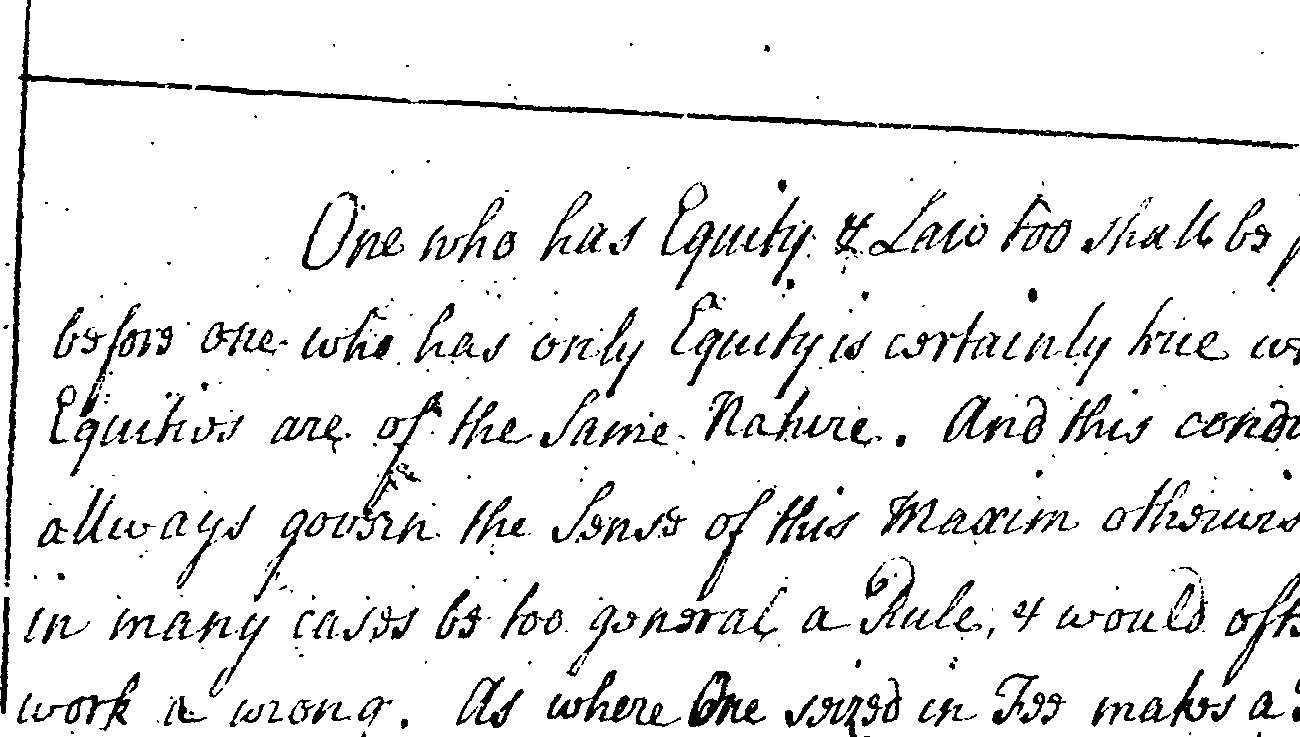 One who has Equity & Law too shall be
before one who has only Equity is certainly true
Equities are of the Same Nature. And this
allways govern the Sense of this Maxim
in many cases be too general a Rule, & would
work a wrong. As where One seized in Fee makes a